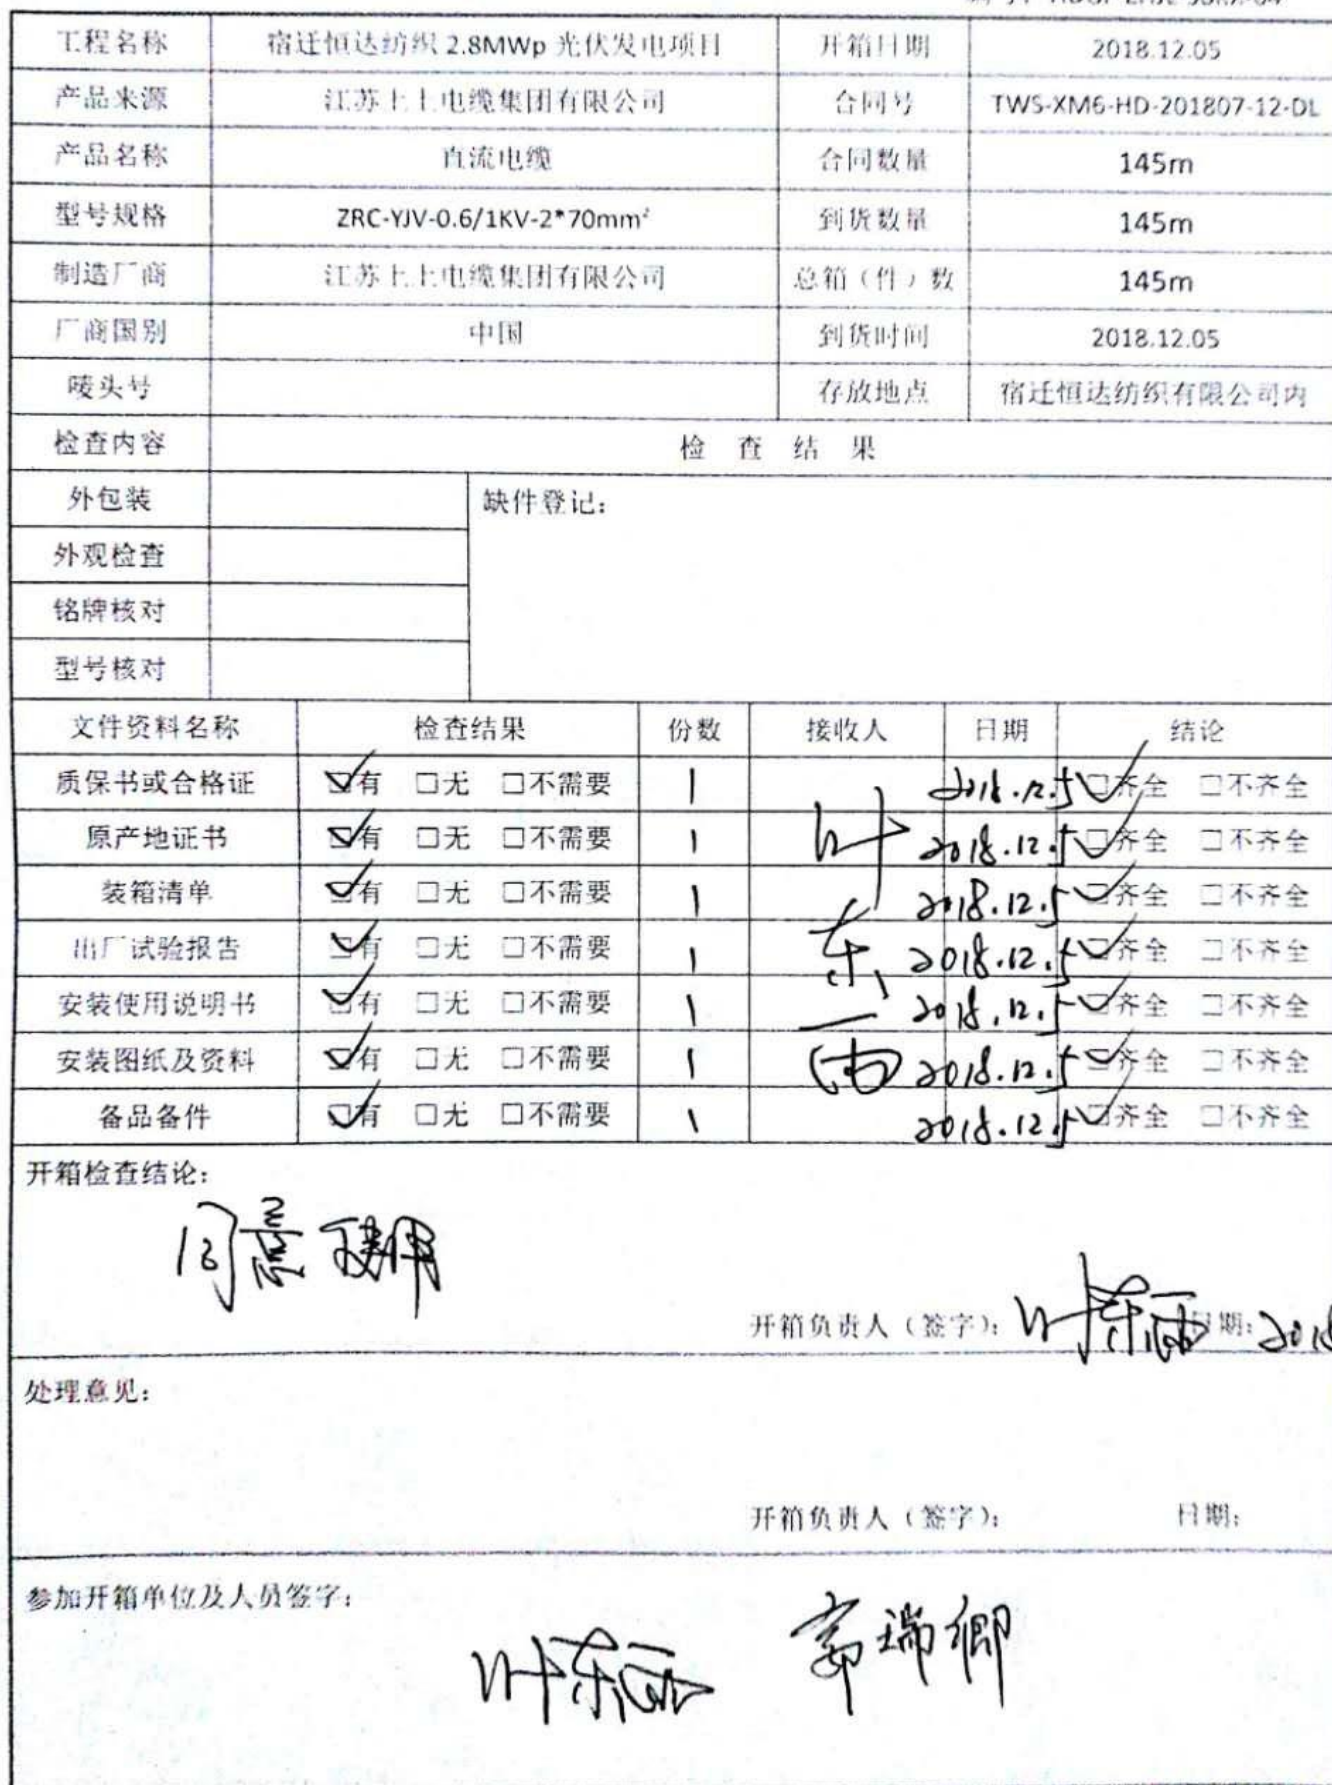 工程名称 宿迁恒达纺织 2.8MWp 光伏发电项目 开箱日期 2018.12.05
产品来源 江苏上上电缆集团有限公司 合同号 TWS-XM6-HD-201807-12-DL
产品名称 直流电缆 合同数量 145m
型号规格 ZRC-YJV-0.6/1KV-2*70mm² 到货数量 145m
制造厂商 江苏上上电缆集团有限公司 总箱（件）数 145m
厂商国别 中国 到货时间 2018.12.05
唛头号 存放地点 宿迁恒达纺织有限公司内
检查内容 检 查 结 果
外包装 缺件登记：
外观检查
铭牌核对
型号核对
文件资料名称 检查结果 份数 接收人 日期 结论
质保书或合格证 ☑有 □无 □不需要 1 2018.12.5 ☑齐全 □不齐全
原产地证书 ☑有 □无 □不需要 1 叶 2018.12.5 ☑齐全 □不齐全
装箱清单 ☑有 □无 □不需要 1 2018.12.5 ☑齐全 □不齐全
出厂试验报告 ☑有 □无 □不需要 1 东 2018.12.5 ☑齐全 □不齐全
安装使用说明书 ☑有 □无 □不需要 1 2018.12.5 ☑齐全 □不齐全
安装图纸及资料 ☑有 □无 □不需要 1 2018.12.5 ☑齐全 □不齐全
备品备件 ☑有 □无 □不需要 1 2018.12.5 ☑齐全 □不齐全
开箱检查结论：
同意使用
开箱负责人（签字）： 叶东 日期： 2018
处理意见：
开箱负责人（签字）： 日期：
参加开箱单位及人员签字：
叶东 郭瑞卿